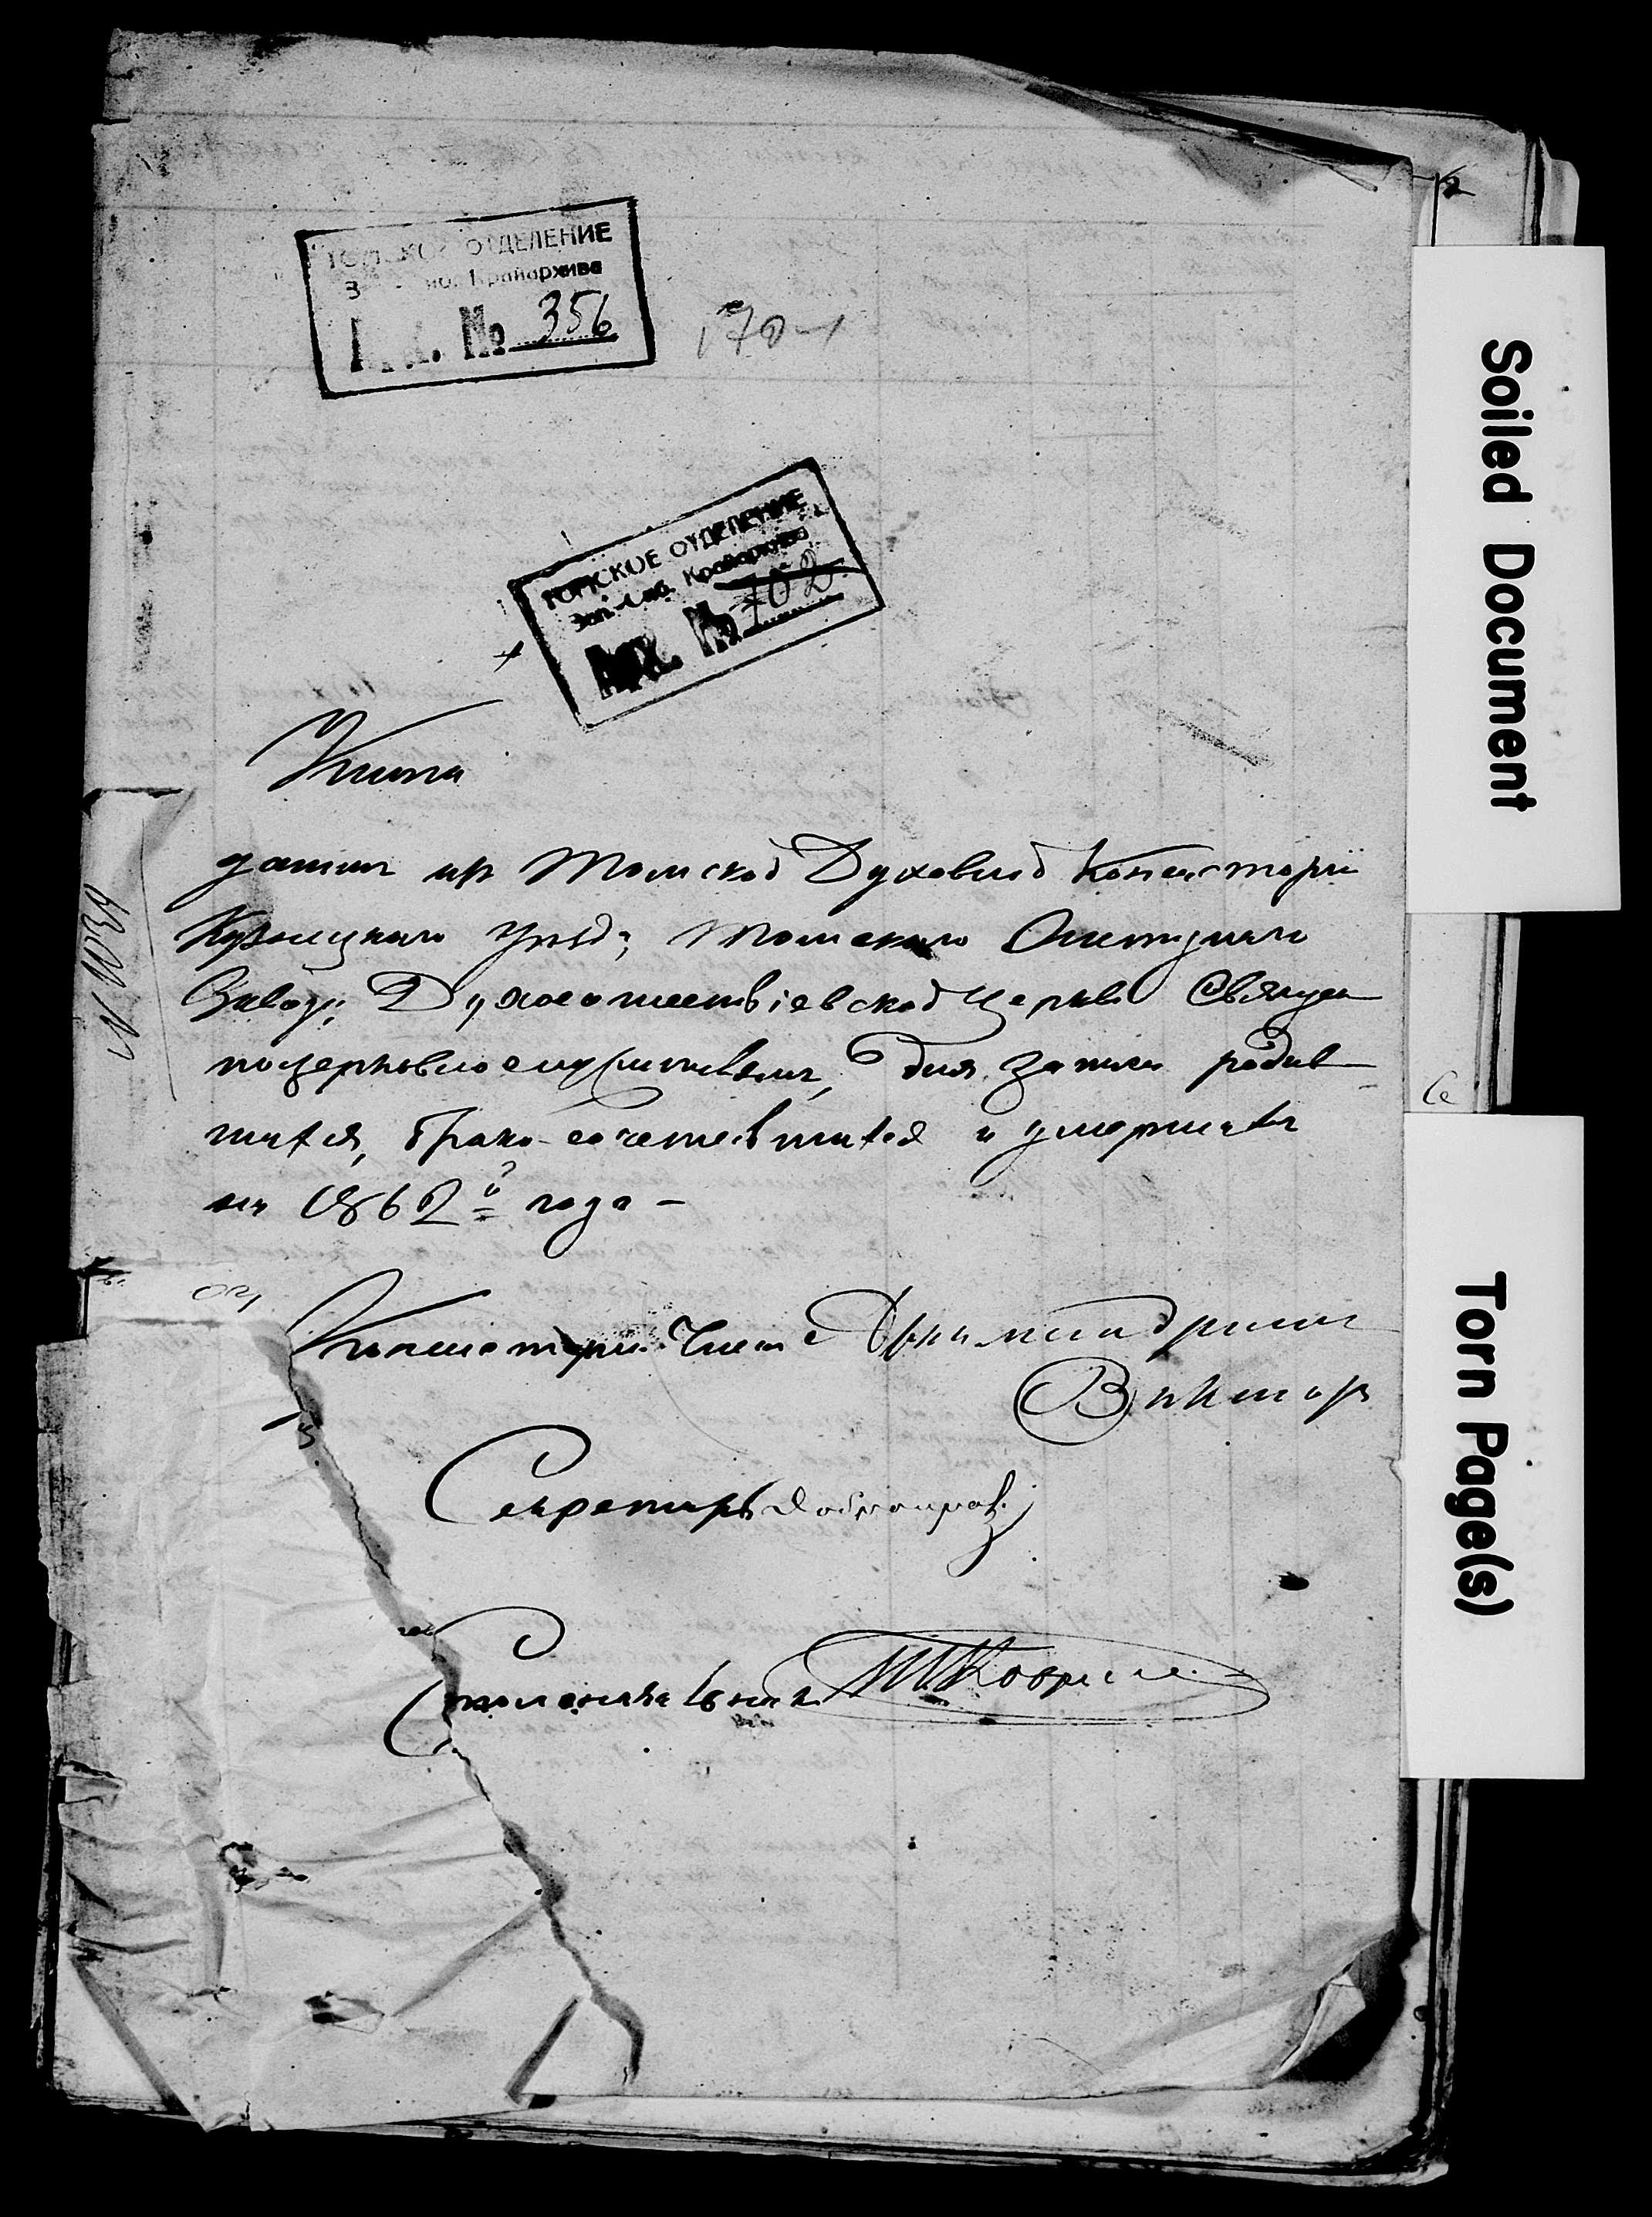 ТОМСКОЕ ОТДЕЛЕНИЕ
Крайархива
№ 356
ТОМСКОЕ ОТДЕЛЕНИЕ
Зап.-Сиб. Крайархива
Арх. № 702
Книга
данная изъ Томской Духовной Консисторіи
Кузнецкаго Уѣзда Томскаго
Завода Духосошествіевской Церкви Священно
поцерковнослужителямъ, для записи родив
шихся, брако-сочетавшихся и умершихъ
на 1862й года -
N 1039
Консисторіи Членъ Архимандритъ
Викторъ
Секретарь
Столоначальникъ
Soiled Document
Torn Page(s)